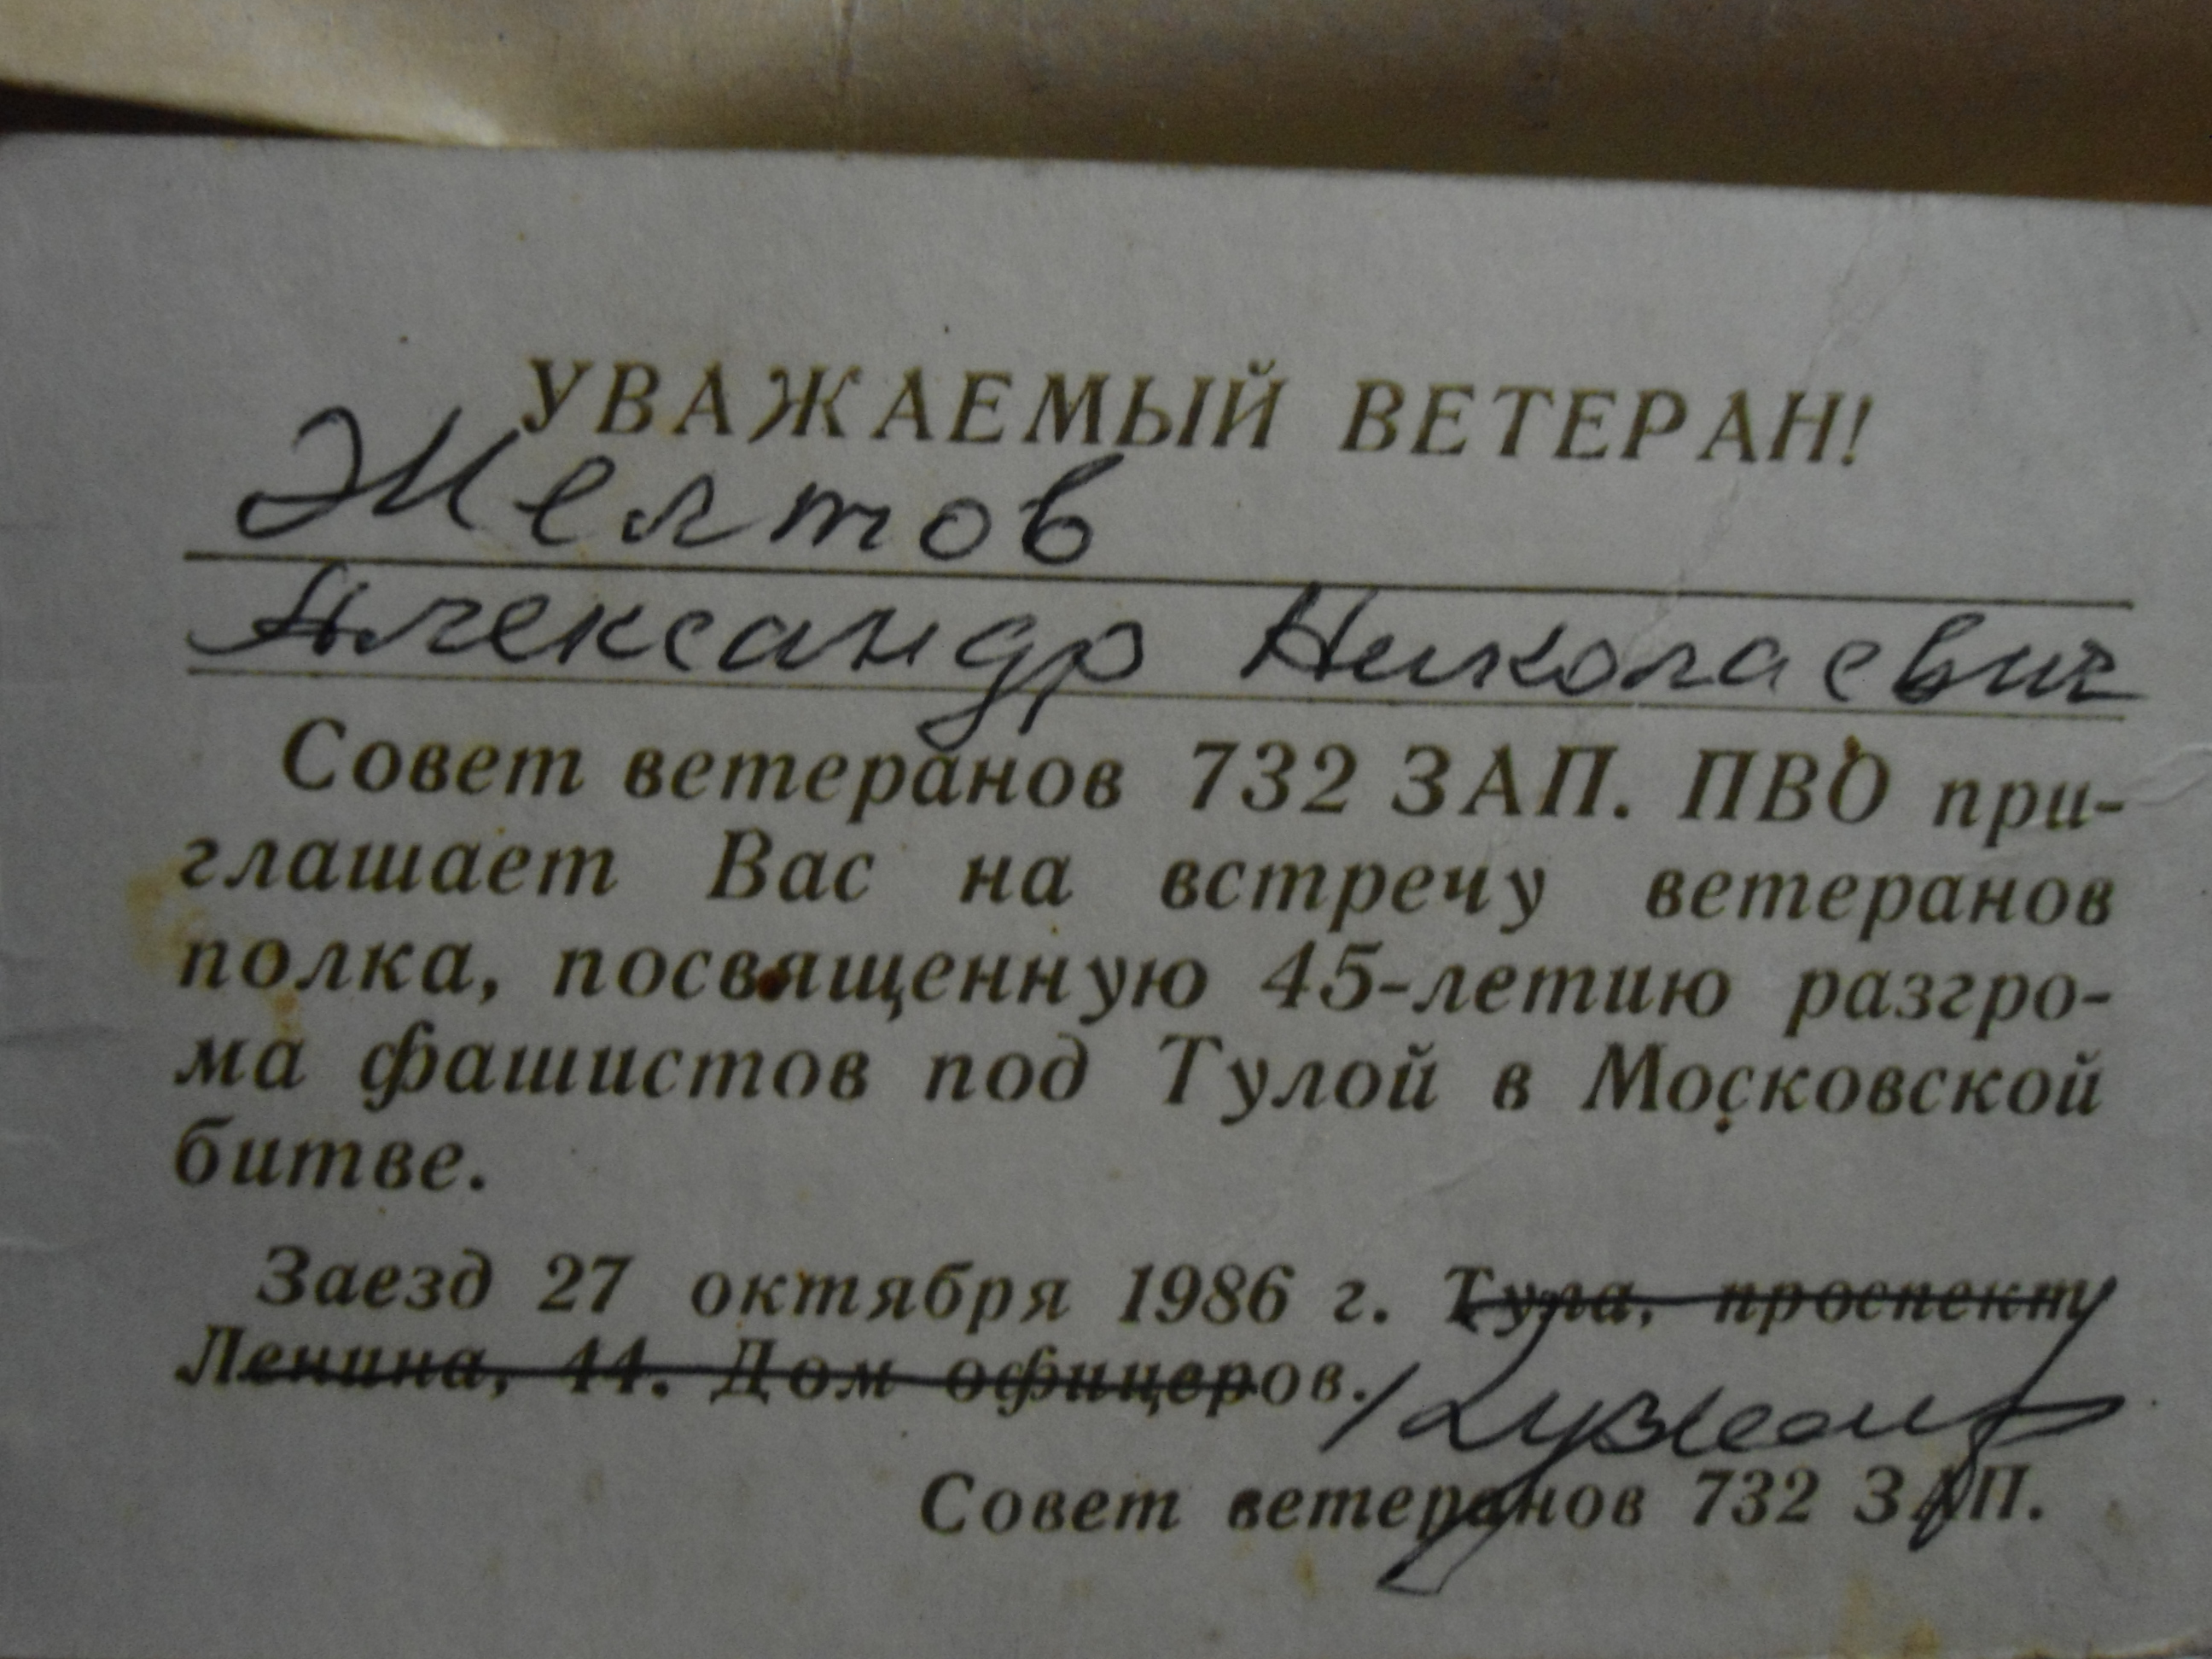 УВАЖАЕМЫЙ ВЕТЕРАН!
Желтов
Александр Николаевич
Совет ветеранов 732 ЗАП. ПВО при-
глашает Вас на встречу ветеранов
полка, посвященную 45-летию разгро-
ма фашистов под Тулой в Московской
битве.
Заезд 27 октября 1986 г. Тула, проспект
Ленина, 44. Дом офицеров.
Совет ветеранов 732 ЗАП.